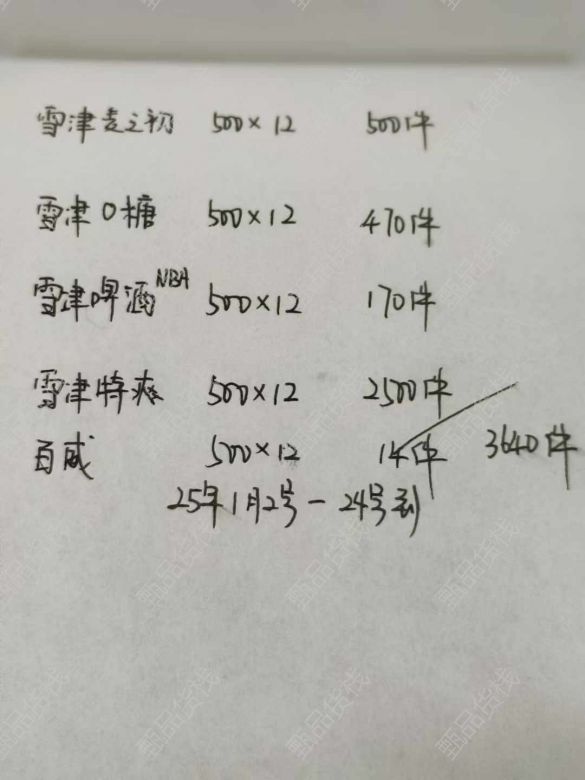 雪津麦之初 500×12 500件
雪津0糖 500×12 470件
雪津啤酒NBA 500×12 170件
雪津特爽 500×12 2500件
百威 500×12 145件 3640件
25年1月2号-24号到
甄品货栈